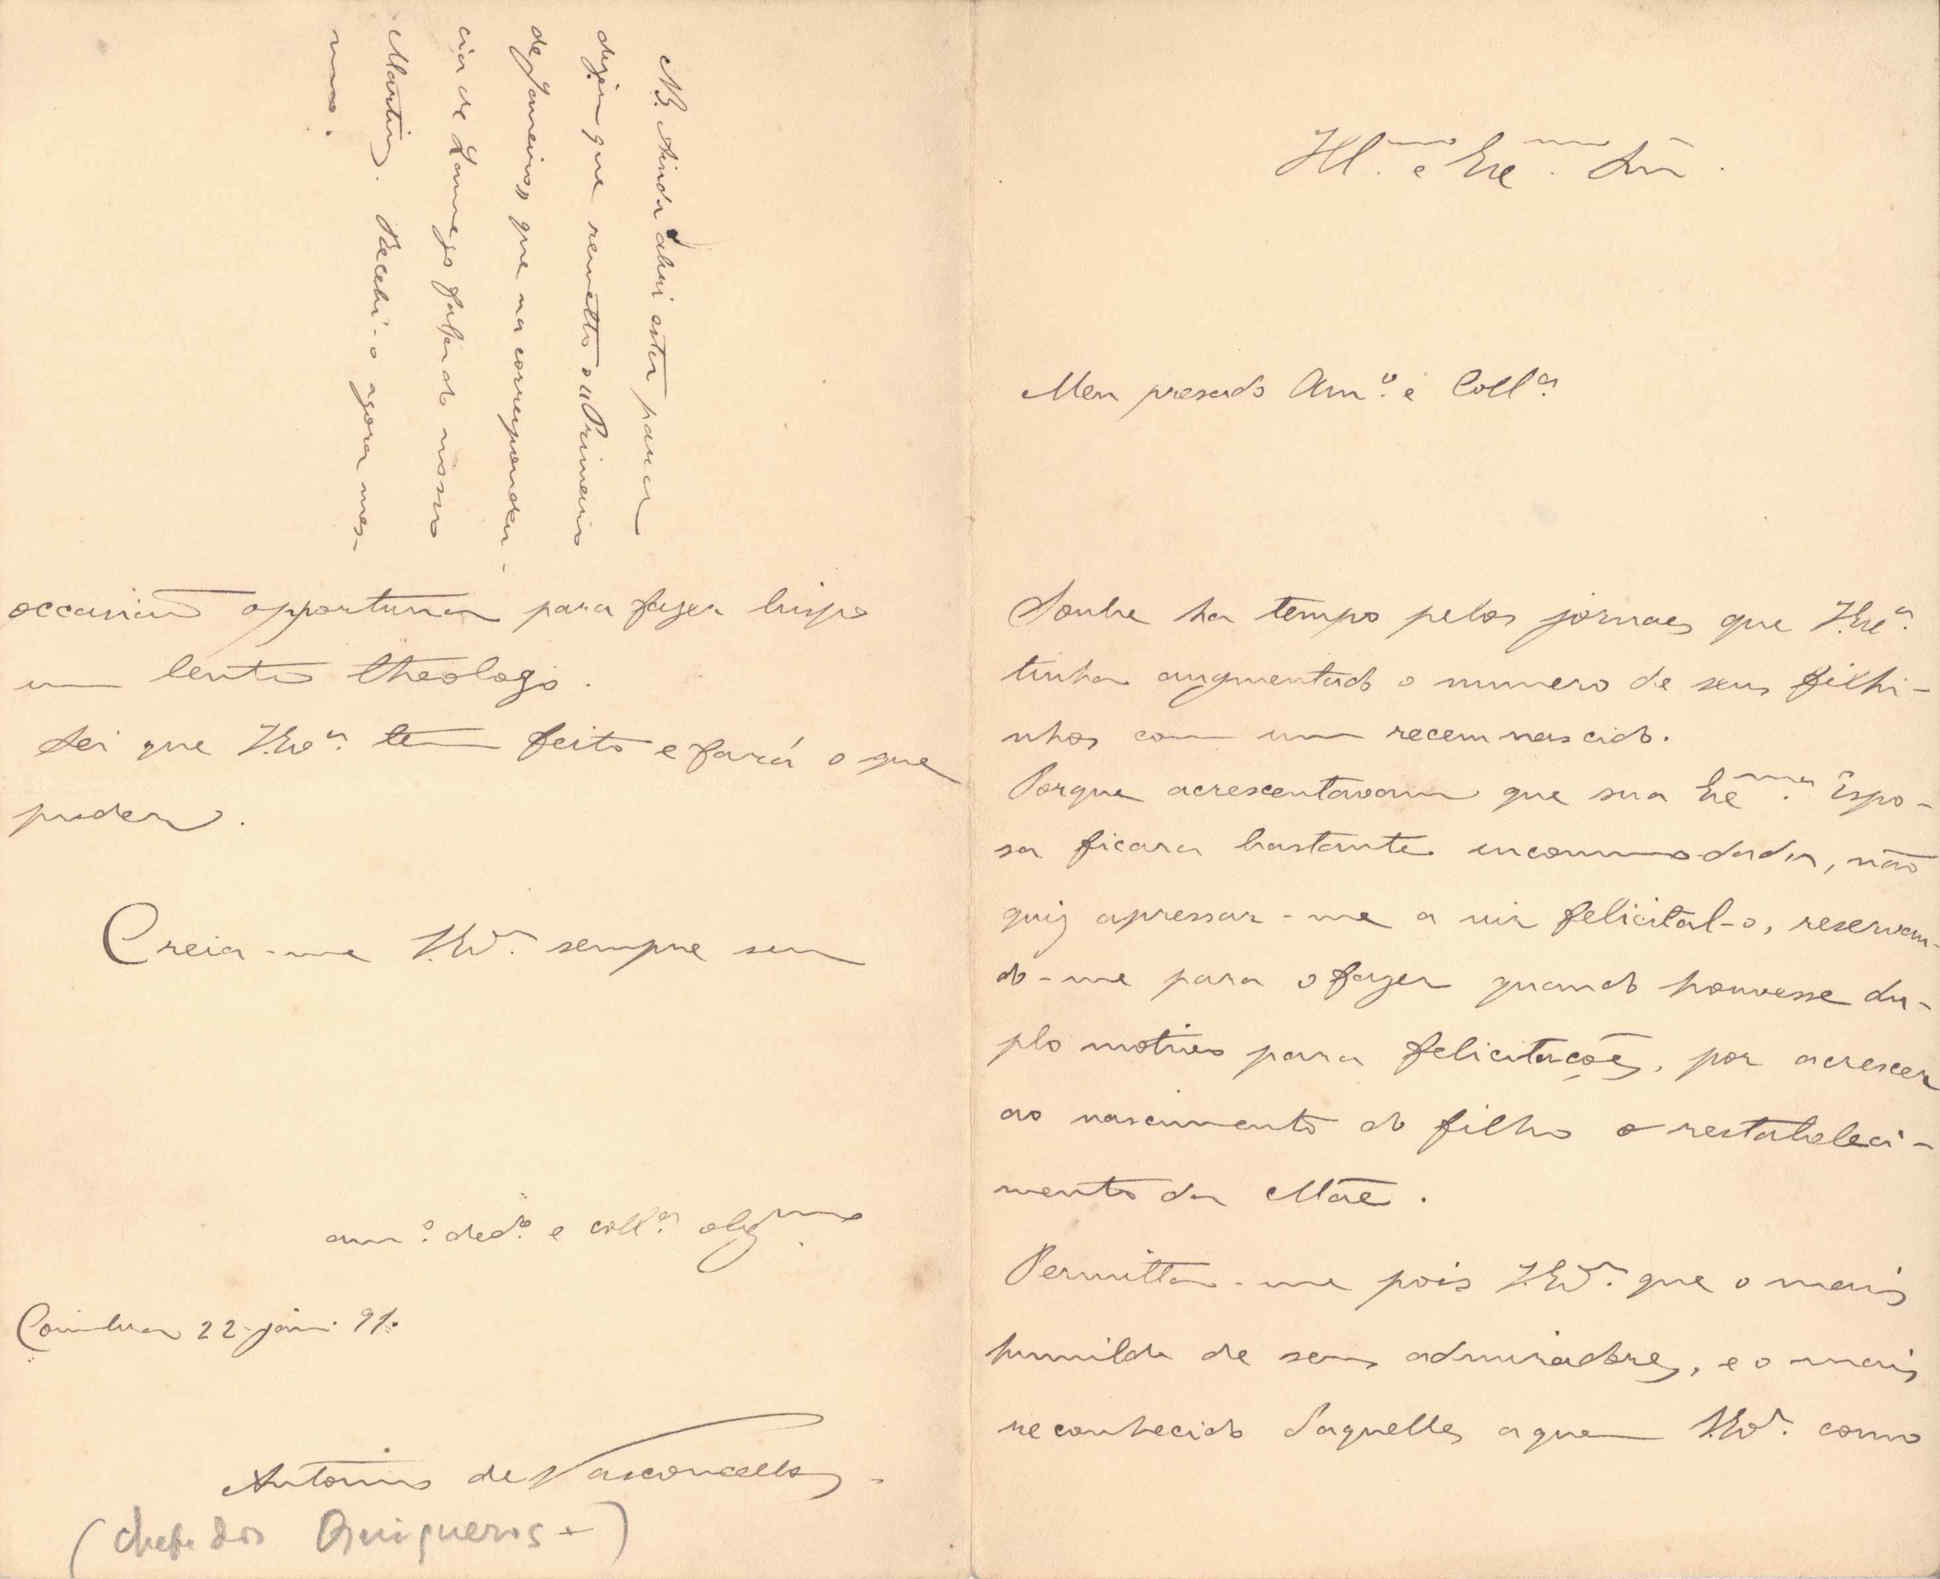 Ill.mo e Exc.mo Snr.
Meu presado Am.o e Coll.a
Soube ha tempo pelos jornaes que V.Exc.a
tinha augmentado o numero de seus filhi-
nhos com um recemnascido.
Porque acrescentavam que sua Exc.ma Espo-
sa ficara bastante incommodada, não
quiz apressar-me a vir felicital-o, reservan-
do-me para o fazer quando houvesse du-
plo motivo para felicitações, por acrescer
ao nascimento do filho o restabeleci-
mento da Mãe.
Permitta-me pois V.Ex.a que o mais
humilde de seus admiradores, e o mais
reconhecido daquelles a quem V.Ex.a como
occasião opportuna para fazer bispo
um lente theologo.
Sei que V.Exc.a tem feito e fará o que
puder.
Creia-me V.Ex.a sempre seu
am.o ded.o e coll.a obg.mo
Coimbra 22-jan. 91.
Antonio de Vasconcellos.
(Chefe dos)
NB. Ainda abri esta para
dizer que remetto o "Primeiro
de Janeiro" que na corresponden-
cia de Lamego falla do nosso
Martins. Recebi-o agora mes-
mo.